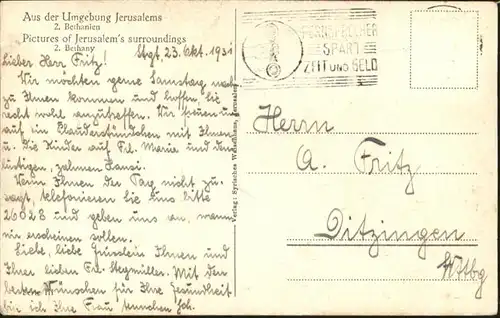 Aus der Umgebung Jerusalems
2. Bethanien
Pictures of Jerusalem's surroundings
2. Bethany
Stgt, 23. Okt. 1931
Lieber Herr Fritz!
Wir möchten gerne Samstag nach
zu Ihnen kommen und hoffen Sie
recht wohl anzutreffen. Wir freuen uns
auf ein Plauderstündchen mit Ihnen
u. die Kinder auf Frl. Marie und den
lustigen, zahmen Hansi.
Wenn Ihnen der Tag nicht zu-
sagt, telefonieren Sie uns bitte
26028 und geben uns an, wann
wir erscheinen sollen.
Liebe, liebe Grüsslein Ihnen und
Ihrer lieben Frl. Megmüller. Mit den
besten Wünschen für Ihre Gesundheit
bin ich Ihre Frau
Verlag: Syrisches Waisenhaus, Jerusalem
FERNSPRECHER
SPART
ZEIT UND GELD
Herrn
A. Fritz
Ditzingen
Wttbg